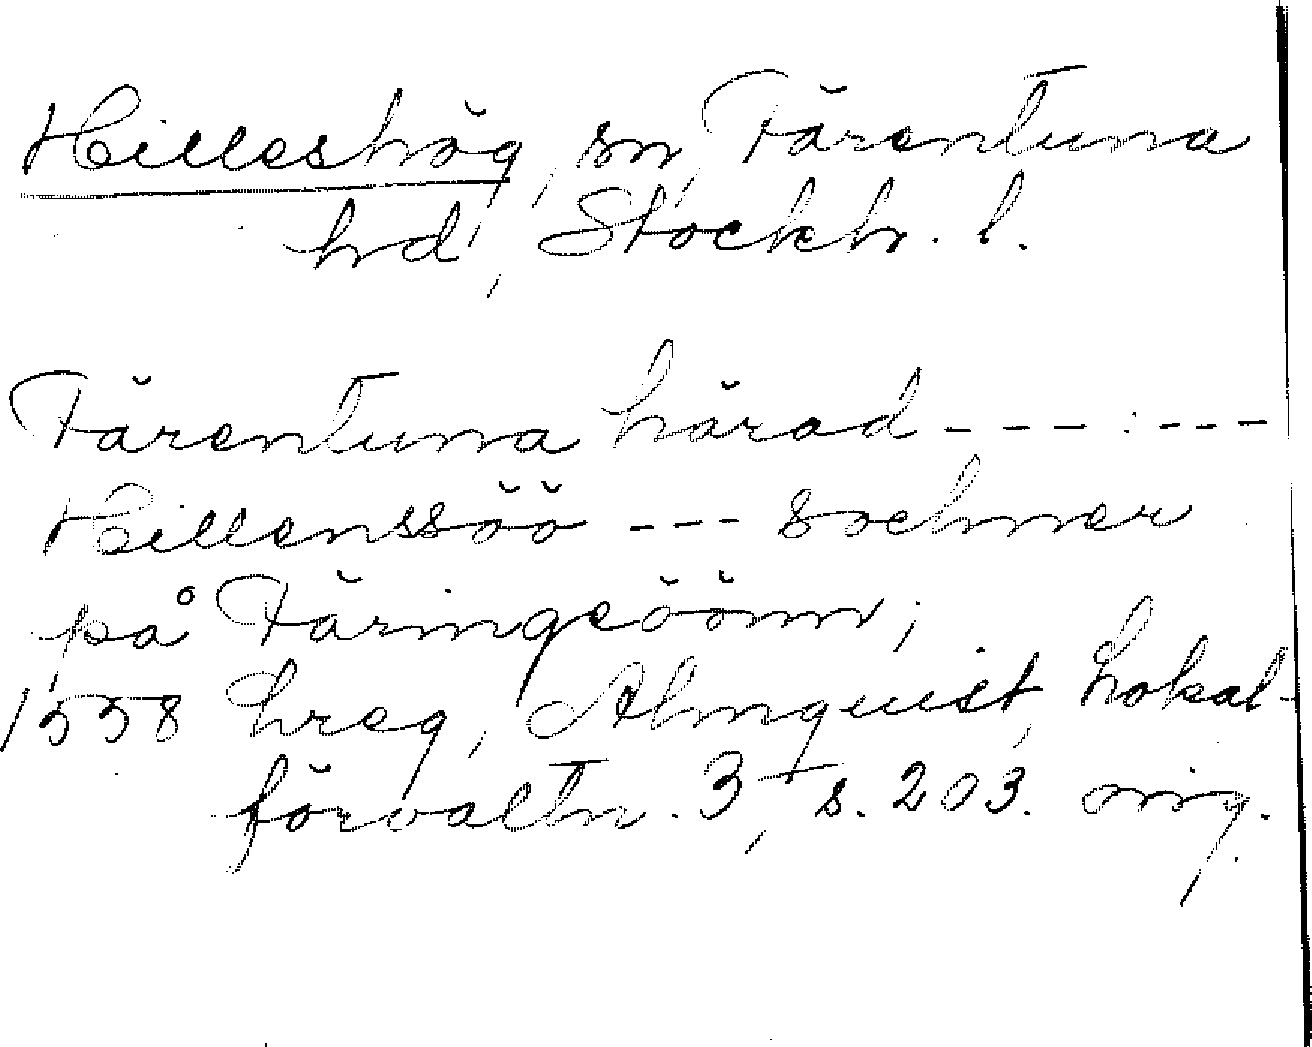 Hilleshög, sn, Färentuna
hd, Stockh. l.
Färentuna härad - - - : - - -
Hillenssöö - - - sochner
på Färingeöönn;
1558 hreg, Almquist, Lokal-
förvaltn. 3, s. 203. orig.